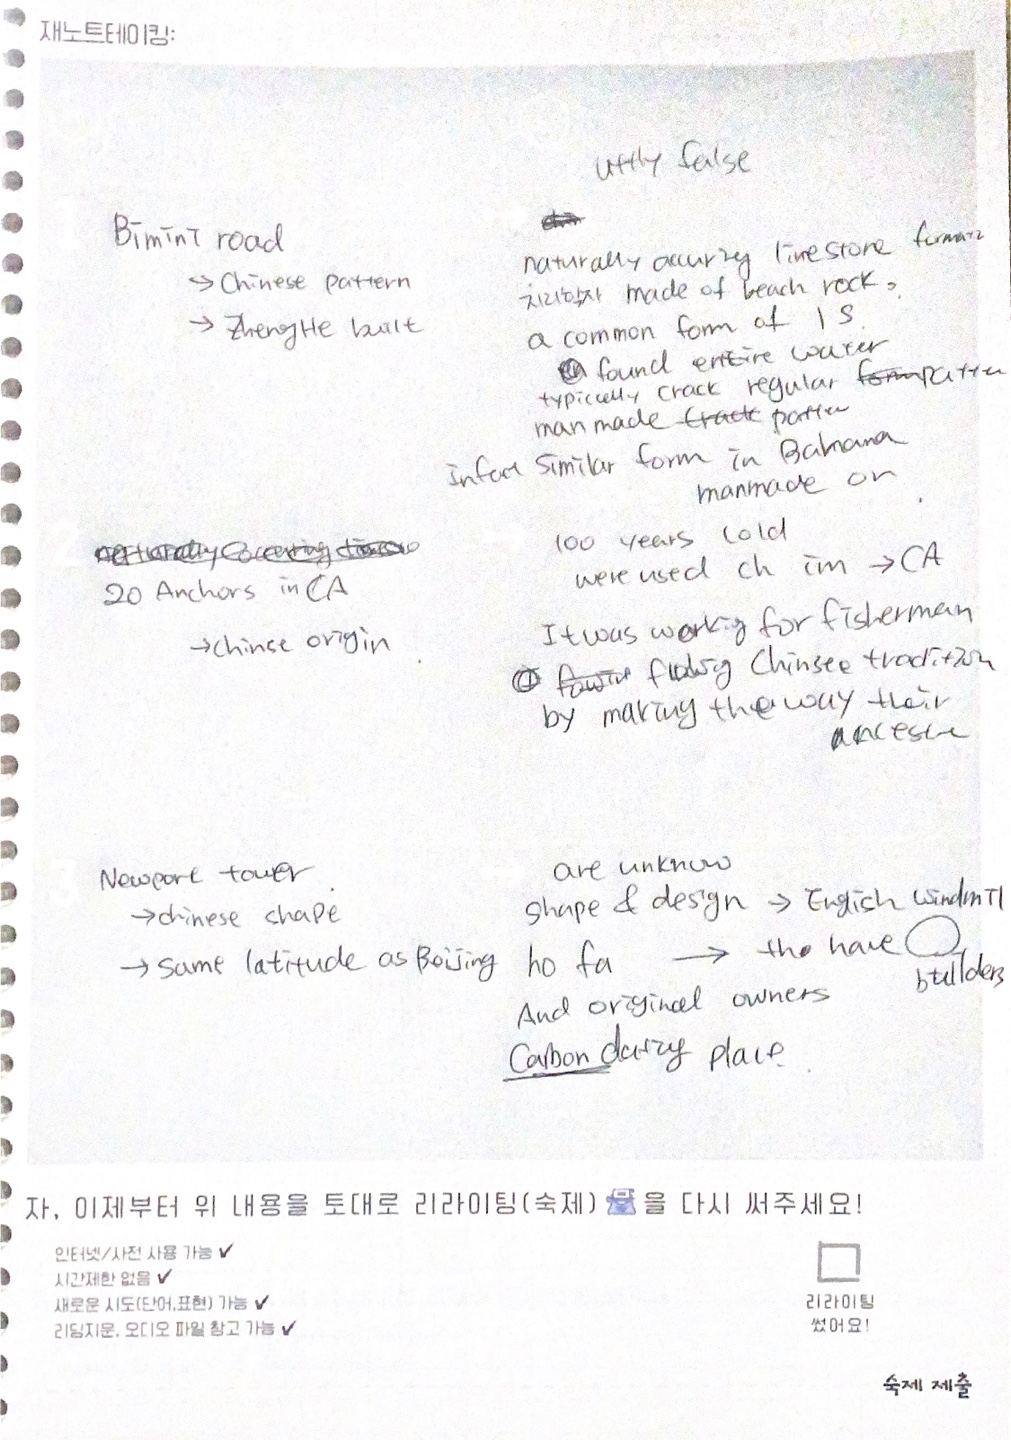 재노트테이킹:
uttly false
Bimini road
→ Chinese pattern
→ ZhengHe built
naturally occurzy limestone
made of beach rock.
a common form of IS.
found entire water
typiclly crack regular
man made
Similar form in Bahama
manmade or
100 years Cold
were used ch im → CA
20 Anchors in CA
→ chinse origin
It was workig for fisherman
Chinsee tradition
by making the way their
Newport tower.
→ chinese shape
→ Same latitude as Beijing
are unknow
shape & design → English windmil
ho fa → tho have
builders
And original owners
Carbon place.
자, 이제부터 위 내용을 토대로 리라이팅(숙제)을 다시 써주세요!
인터넷/사전 사용 가능 ✓
시간제한 없음 ✓
새로운 시도(단어,표현) 가능 ✓
리딩지문, 오디오 파일 참고 가능 ✓
리라이팅
썼어요!
숙제 제출